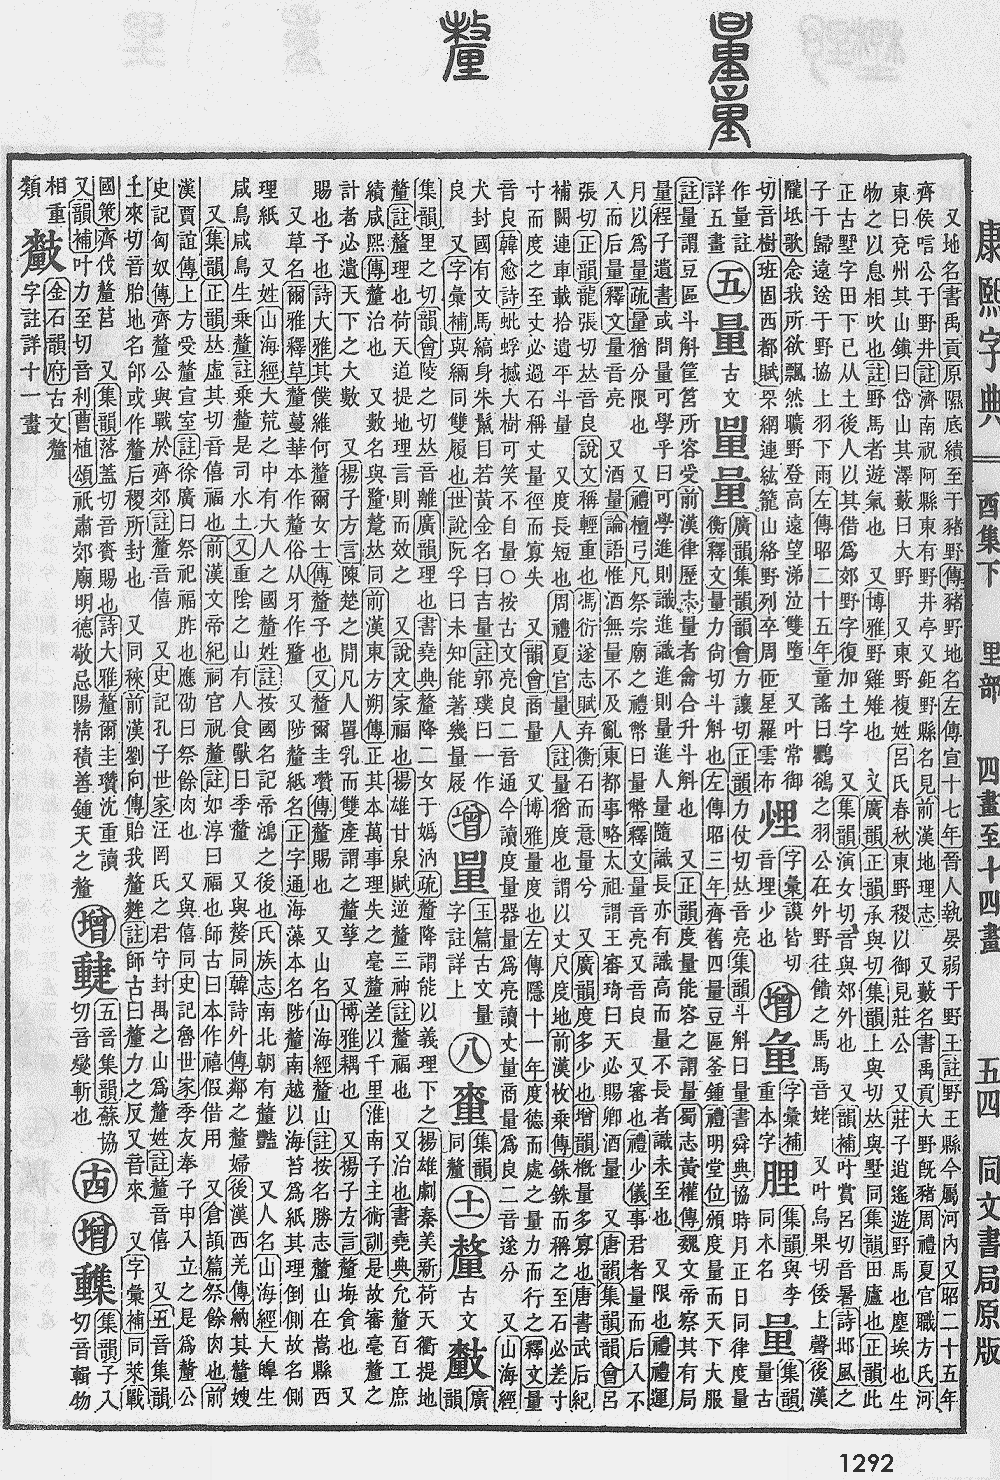 康熙字典 酉集下 里部 四畫至十四畫 五四 同文書局原版
又地名書禹貢原隰底績至于豬野傳豬野地名左傳宣十七年晉人執晏弱于野王註野王縣今屬河內又昭二十五年
齊侯唁公于野井註濟南祝阿縣東有野井亭又鉅野縣名見前漢地理志 又藪名書禹貢大野旣豬周禮夏官職方氏河
東曰兗州其山鎮曰岱山其澤藪曰大野 又東野複姓呂氏春秋東野稷以御見莊公 又莊子逍遙遊野馬也塵埃也生
物之以息相吹也註野馬者遊氣也 又博雅野雞雉也 又廣韻正韻承與切集韻上與切𠀤與墅同集韻田廬也正韻此
正古墅字田下已从土後人以其借爲郊野字復加土字 又集韻演女切音與郊外也 又韻補叶賞呂切音暑詩邶風之
子于歸遠送于野協上羽下雨左傳昭二十五年童謠曰鸜鵒之羽公在外野往饋之馬馬音姥 又叶烏果切倭上聲後漢
隴坻歌念我所欲飄然曠野登高遠望涕泣雙墮 又叶常御
切音樹班固西都賦罘網連紘籠山絡野列卒周匝星羅雲布
字彙謨皆切
音埋少也
增
字彙補
重本字
集韻與李
同木名
量
集韻
量古
作量註
詳五畫
五 量
古
文
廣韻集韻韻會力讓切正韻力仗切𠀤音亮集韻斗斛曰量書舜典協時月正日同律度量
衡釋文量力尙切斗斛也左傳昭三年齊舊四量豆區釜鍾禮明堂位頒度量而天下大服
註量謂豆區斗斛筐筥所容受前漢律歷志量者龠合升斗斛也 又正韻度量能容之謂量蜀志黃權傳魏文帝察其有局
量程子遺書或問量可學乎曰可學進則識進識進則量進人量隨識長亦有識高而量不長者識未至也 又限也禮禮運
月以爲量疏量猶分限也 又禮檀弓凡祭宗廟之禮幣曰量幣釋文量音亮又音良 又審也禮少儀事君者量而后入不
入而后量釋文量音亮 又酒量論語惟酒無量不及亂東都事略太祖謂王審琦曰天必賜卿酒量 又唐韻集韻韻會呂
張切正韻龍張切𠀤音良說文稱輕重也馮衍遂志賦弃衡石而意量兮 又廣韻度多少也增韻槪量多寡也唐書武后紀
補闕連車載拾遺平斗量 又度長短也周禮夏官量人註量猶度也謂以丈尺度地前漢枚乘傳銖銖而稱之至石必差寸
寸而度之至丈必過石稱丈量徑而寡失 又韻會商量 又博雅量度也左傳隱十一年度德而處之量力而行之釋文量
音良韓愈詩蚍蜉撼大樹可笑不自量○按古文亮良二音通今讀度量器量爲亮讀丈量商量爲良二音遂分 又山海經
犬封國有文馬縞身朱鬣目若黃金名曰吉量註郭璞曰一作
良 又字彙補與緉同雙履也世說阮孚曰未知能著幾量屐
增
玉篇古文量
字註詳上
八
集韻
同釐
十一 釐
古文
廣
韻
集韻里之切韻會陵之切𠀤音離廣韻理也書堯典釐降二女于嬀汭疏釐降謂能以義理下之揚雄劇秦美新荷天衢提地
釐註釐理也荷天道提地理言則而效之 又說文家福也揚雄甘泉賦逆釐三神註釐福也 又治也書堯典允釐百工庶
績咸熙傳釐治也 又數名與釐𠀤同前漢東方朔傳正其本萬事理失之毫釐差以千里淮南子主術訓是故審毫釐之
計者必遺天下之大數 又揚子方言陳楚之閒凡人嘼乳而雙產謂之釐孳 又博雅耦也 又揚子方言釐塲貪也 又
賜也予也詩大雅其僕維何釐爾女士傳釐予也又釐爾圭瓚傳釐賜也 又山名山海經釐山註按名勝志釐山在嵩縣西
又草名爾雅釋草釐蔓華本作釐俗从牙作𨤲 又陟釐紙名正字通海藻本名陟釐南越以海苔爲紙其理倒側故名側
理紙 又姓山海經大荒之中有大人之國釐姓註按國名記帝鴻之後也氏族志南北朝有釐豔 又人名山海經大皥生
咸鳥咸鳥生乘釐註乘釐是司水土又重陰之山有人食獸曰季釐 又與嫠同韓詩外傳鄰之釐婦後漢西羌傳納其釐嫂
又集韻正韻𠀤虛其切音僖福也前漢文帝紀祠官祝釐註如淳曰福也師古曰本作禧假借用 又倉頡篇祭餘肉也前
漢賈誼傳上方受釐宣室註徐廣曰祭祀福胙也應劭曰祭餘肉也 又與僖同史記魯世家季友奉子申入立之是爲釐公
史記匈奴傳齊釐公與戰於齊郊註釐音僖 又史記孔子世家汪罔氏之君守封禺之山爲釐姓註釐音僖 又五音集韻
土來切音胎地名郃或作釐后稷所封也 又同秾前漢劉向傳貽我釐麰註師古曰釐力之反又音來 又字彙補同萊戰
國策齊伐釐莒 又集韻落蓋切音賚賜也詩大雅釐爾圭瓚沈重讀
又韻補叶力至切音利曹植頌祇肅郊廟明德敬忌陽精積善鍾天之釐
增
五音集韻蘇協
切音燮斬也
十四 增
集韻子入
切音輯物
相重
類
金石韻府古文釐
字註詳十一畫
1292